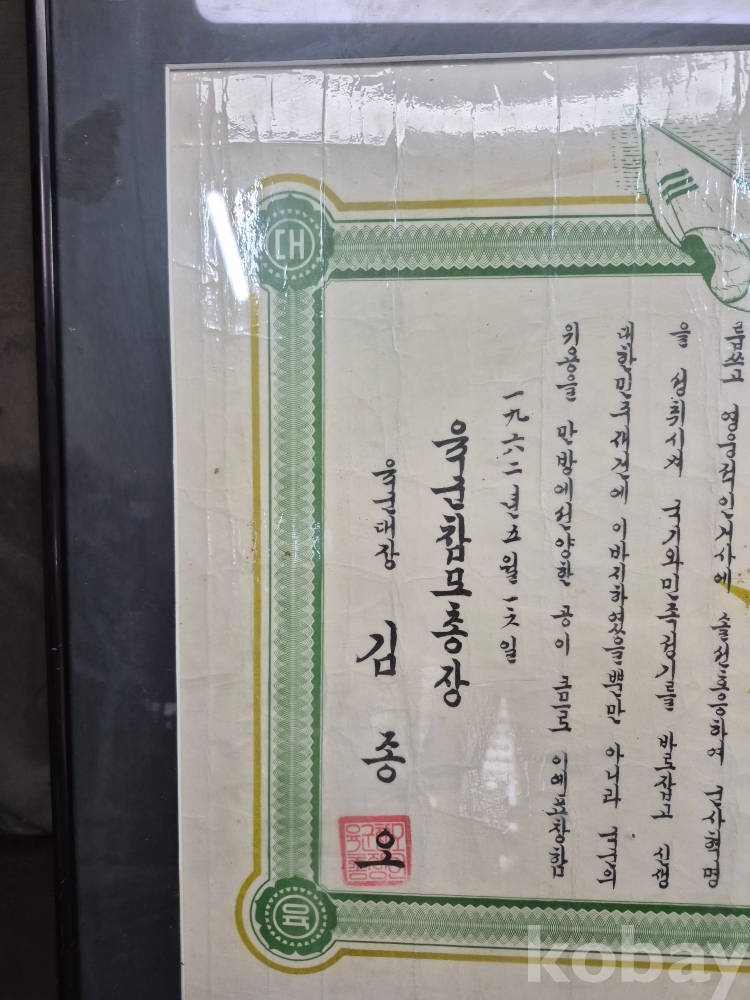 대
릅쓰고 영웅적인거사에 솔선호응하여 군사혁명
을 성취시켜 국가와민족정기를 바로잡고 신생
대한민국재건에 이바지하였을뿐만 아니라 국군의
위용을 만방에선양한 공이 큼므로 이에표창함
一九六二년五월一六일
육군참모총장
육군대장 김종오
육
kobay